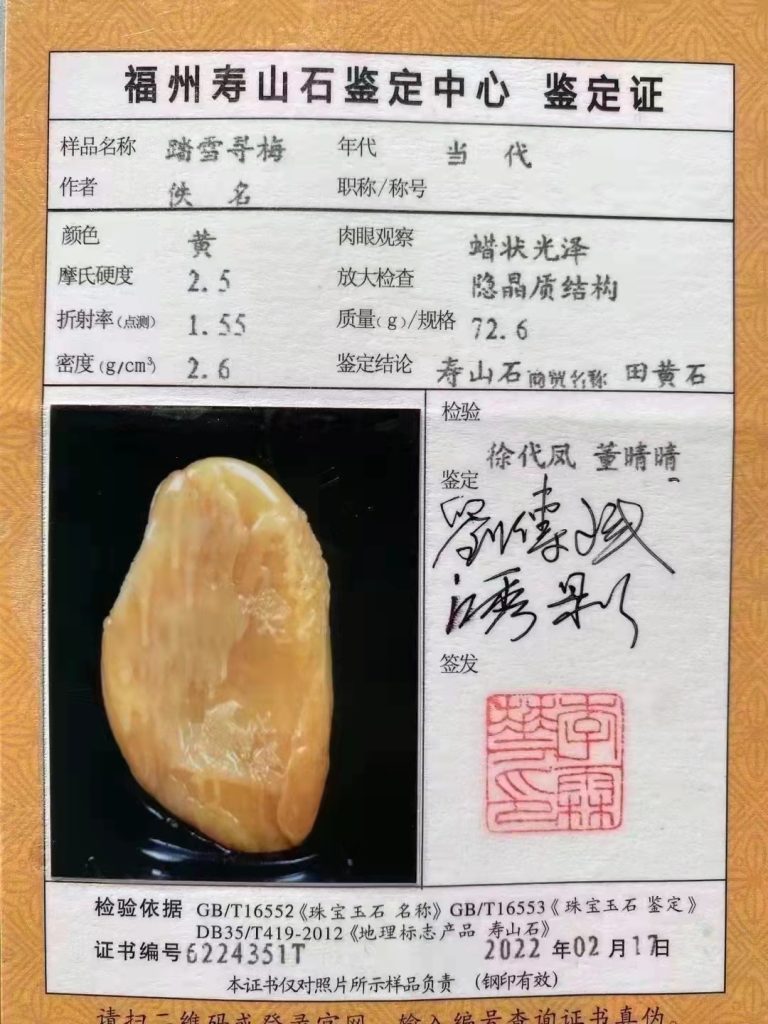 福州寿山石鉴定中心 鉴定证
样品名称 踏雪寻梅 年代 当 代
作者 佚 名 职称/称号
颜色 黄 肉眼观察 蜡状光泽
摩氏硬度 2.5 放大检查 隐晶质结构
折射率(点测) 1.55 质量(g)/规格 72.6
密度(g/cm³) 2.6 鉴定结论 寿山石 商贸名称 田黄石
检验
徐代凤 董晴晴
鉴定
签发
检验依据 GB/T16552《珠宝玉石 名称》GB/T16553《珠宝玉石 鉴定》
DB35/T419-2012《地理标志产品 寿山石》
证书编号6224351T 2022 年02 月17日
本证书仅对照片所示样品负责 (钢印有效)
请扫二维码或登录官网,输入编号查询证书真伪。